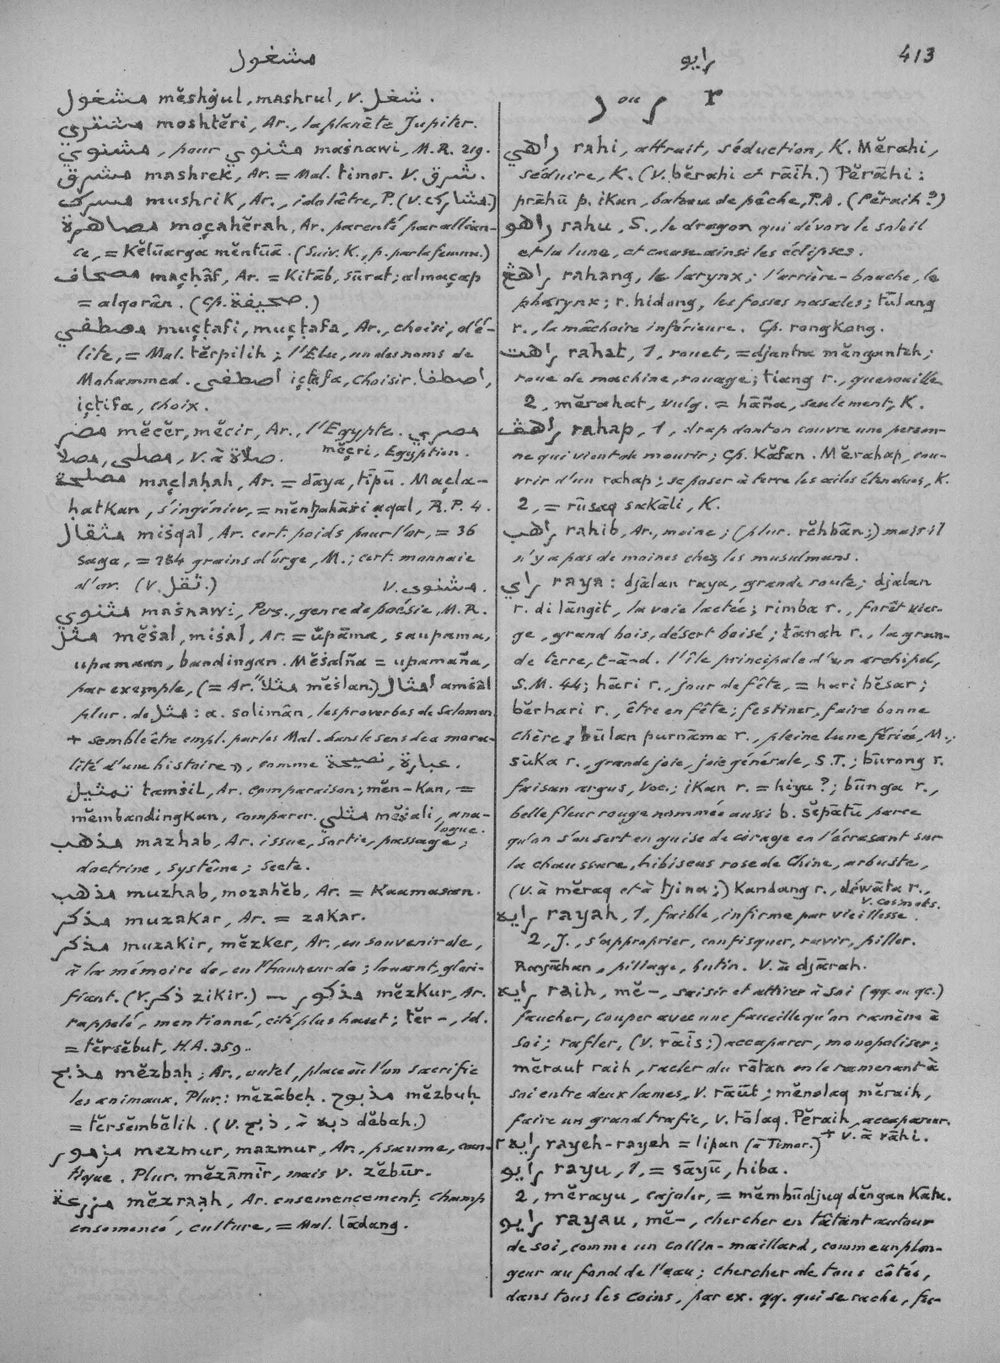 مشغول
رايو
413
مشغول mĕshġul, mashrul, V. شغل.
مشتري moshtĕri, Ar., la planète Jupiter.
مشنوي, pour مثنوي maṡnawi, M.R. 219.
مشرق mashrek, Ar. = Mal. timor. V. شرق.
مشرك mushrik, Ar., idolâtre, P. (V. مشارك.)
مصاهرة moçahĕrah, Ar. parenté par allian-
ce, = Kĕlŭarga mĕntŭā. (Suiv. K., p. par la femme.)
مصحاف maçḥâf, Ar. = Kitāb, sūrat; almaçap
= alqorân. (Cp. صحيفة.)
مصطفي muçṭafi, muçṭafa, Ar., choisi, d'é-
lite, = Mal. tĕrpilih; l'Elu, un des noms de
Mohammed. اصطفى içṭafa, choisir. اصطفا,
içtifa, choix.
مصر mĕcĕr, mĕcir, Ar., l'Egypte. مصري
mĕçri, Egyptien.
مصلى, مصلا, V. à صلاة.
مصلحة maçlaḥah, Ar. = dāya, tīpū. Maçla-
ḥatkan, s'ingénier, = mĕntjahāri aqal, R.P. 4.
مثقال miṡqal, Ar. cert. poids pour l'or, = 36
saga, = 184 grains d'orge, M.; cert. monnaie
d'or. (V. ثقل.) V. مشنوى.
مثنوي maṡnawi, Pers., genre de poésie, M.R.
مثل mĕṡal, miṡal, Ar. = ŭpāma, saupama,
upamaan, bandingan. Mĕṡalña = upamaña,
par exemple, (= Ar. مثلا mĕṡlan.) امثال amṡâl
plur. de مثل: a. solimân, les proverbes de Salomon
+ semble être empl. par les Mal. dans le sens de « mora-
lité d'une histoire », comme عبارة, نصيحة.
تمثيل tamṡil, Ar. comparaison; mĕn-kan, =
mĕmbandingkan, comparer. مثلي mĕṡali, ana-
logue.
مذهب mazhab, Ar. issue, sortie, passage;
doctrine, système; secte.
مذهب muzhab, mozahĕb, Ar. = Kaamasan.
مذكر muzakar, Ar. = zakar.
مذكر muzakir, mĕzker, Ar., en souvenir de,
à la mémoire de, en l'honneur de; louant, glori-
fiant. (V. ذكر zikir.) — مذكور mĕzkur, Ar.
rappelé, mentionné, cité plus haut; tĕr-, id.
= tĕrsĕbut, H.A. 259.
مذبح mĕzbaḥ; Ar., autel, place où l'on sacrifie
les animaux. Plur.: mĕzābĕḥ. مذبوح mĕzbuḥ
= tĕrsĕmbĕlih. (V. ذبح, à دبه dĕbah.)
مزمور mezmur, mazmur, Ar., psaume, can-
tique. Plur. mĕzāmīr, mais V. zĕbūr.
مزرعة mĕzraạh, Ar. ensemencement, champ
ensemencé, culture, = Mal. lādang.
ر ou ر r
راهي rahi, attrait, séduction, K. Mĕrahi,
séduire, K. (V. bĕrahi et rāih.) Pĕrāhi:
prāhū p. ikan, bateau de pêche, P.A. (Pĕraih?)
راهو rahu, S., le dragon qui dévore le soleil
et la lune, et cause ainsi les éclipses.
راهڠ rahang, le larynx; l'arrière-bouche, le
pharynx; r. hidong, les fosses nasales; tūlang
r., la mâchoire inférieure. Cp. rongkong.
راهت rahat, 1, rouet, = djantra mĕngantĕh;
roue de machine, rouage; tiang r., quenouille
2, mĕrahat, vulg. = hāña, seulement, K.
راهڤ rahap, 1, drap dont on couvre une person-
ne qui vient de mourir; Cp. Kāfan. Mĕrahap, cou-
vrir d'un rahap; se poser à terre les ailes étendues, K.
2, = rūsaq sakāli, K.
راهب rahib, Ar., moine; (plur. rĕhbān;) mais il
n'y a pas de moines chez les musulmans.
راي raya: djālan raya, grande route; djalan
r. di lāngit, la voie lactée; rimba r., forêt vier-
ge, grand bois, désert boisé; tānah r., la gran-
de terre, c-à-d. l'île principale d'un archipel,
S.M. 44; hāri r., jour de fête, = hari bĕsar;
bĕrhari r., être en fête; festiner, faire bonne
chère; būlan purnāma r., pleine lune fériée, M.;
sūka r., grande joie, joie générale, S.T.; būrong r.
faisan argus, Voc.; ikan r. = hiyu?; būnga r.,
belle fleur rouge nommée aussi b. sĕpātū parce
qu'on s'en sert en guise de cirage en l'écrasant sur
la chaussure, hibiscus rose de Chine, arbuste,
(V. à mĕraq et à tjina;) Kandang r., déwāta r.,
V. cosmets.
رايه rayah, 1, faible, infirme par vieillesse.
2, J., s'approprier, confisquer, ravir, piller.
Rayāhan, pillage, butin. V. à djārah.
رايه raih, mĕ-, saisir et attirer à soi (qq. ou qc.)
faucher, couper avec une faucille qu'on ramène à
soi; rafler, (V. rāïs;) accaparer, monopoliser;
mĕraut raih, racler du rātan en le ramenant à
soi entre deux lames, V. rāüt; mĕnolaq mĕraih,
faire un grand trafic, V. tōlaq. Pĕraih, accapareur.
+ V. à rāhi.
رايه rayeh-rayeh = lipan (à Timor.)
رايو rayu, 1, = sāyū, hiba.
2, mĕrayu, cajoler, = mĕmbūdjuq dĕngan kāta.
رايو rayau, mĕ-, chercher en tâtant autour
de soi, comme un collin-maillard, comme un plon-
geur au fond de l'eau; chercher de tous côtés,
dans tous les coins, par ex. qq. qui se cache, fu-